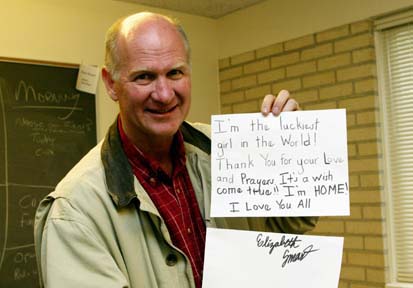 MORNING
I'm the luckiest
girl in the World!
Thank You for your Love
and Prayers. It's a wish
come true!! I'm HOME!
I Love You All
Elizabeth
Smart